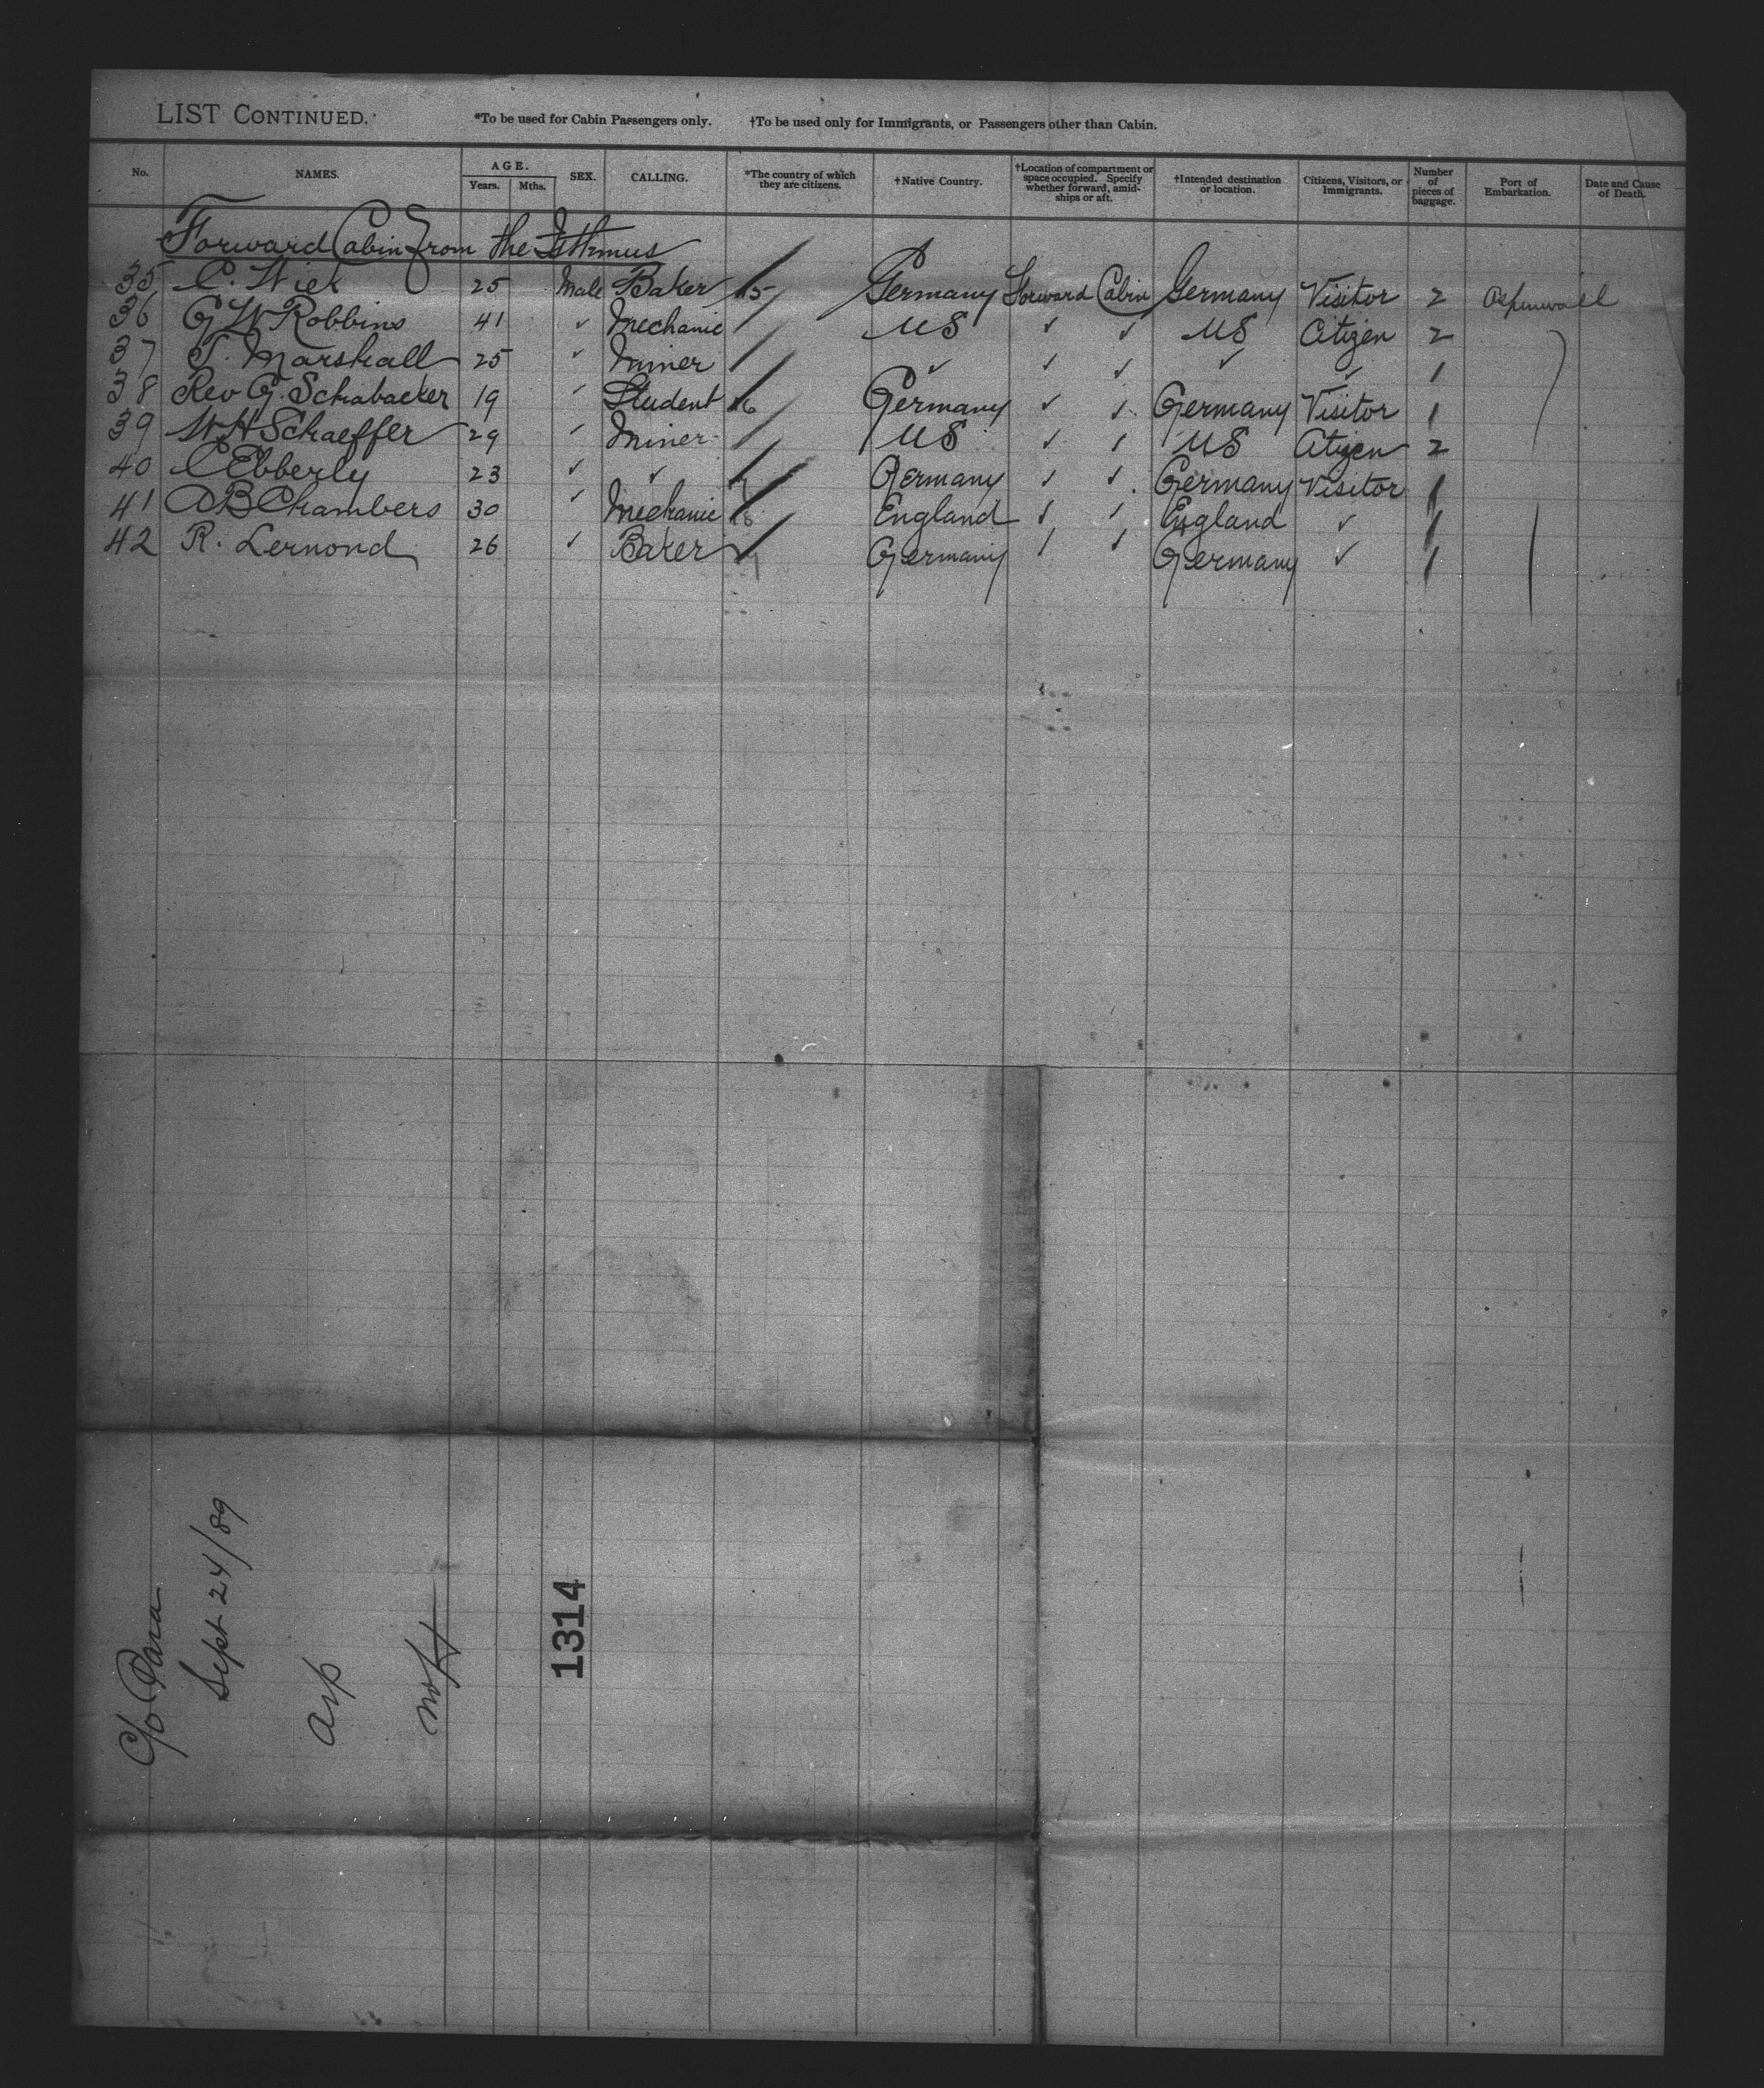 LIST CONTINUED. *To be used for Cabin Passengers only. †To be used only for Immigrants, or Passengers other than Cabin.
No. NAMES. AGE. Years. Mths. SEX. CALLING. *The country of which they are citizens. †Native Country. †Location of compartment or space occupied. Specify whether forward, amidships or aft. †Intended destination or location. Citizens, Visitors, or Immigrants. Number of pieces of baggage. Port of Embarkation. Date and Cause of Death.
Forward Cabin From the Isthmus
35 C. Wick 25 Male Baker 15 Germany Forward Cabin Germany Visitor 2 Aspinwall
36 G W Robbins 41 ✓ Mechanic US ✓ ✓ US Citizen 2
37 T. Marshall 25 ✓ Miner ✓ ✓ ✓ ✓ ✓ 1
38 Rev G. Schabacker 19 ✓ Student 16 Germany ✓ ✓ Germany Visitor 1
39 W H Schaeffer 29 ✓ Miner US ✓ ✓ US Citizen 2
40 C Ebberly 23 ✓ ✓ 17 Germany ✓ ✓ Germany Visitor 1
41 A B Chambers 30 ✓ Mechanic 18 England ✓ ✓ England ✓ 1
42 R. Lernond 26 ✓ Baker 19 Germany ✓ ✓ Germany ✓ 1
C/o Para
Sept 24/89
Asp
1314